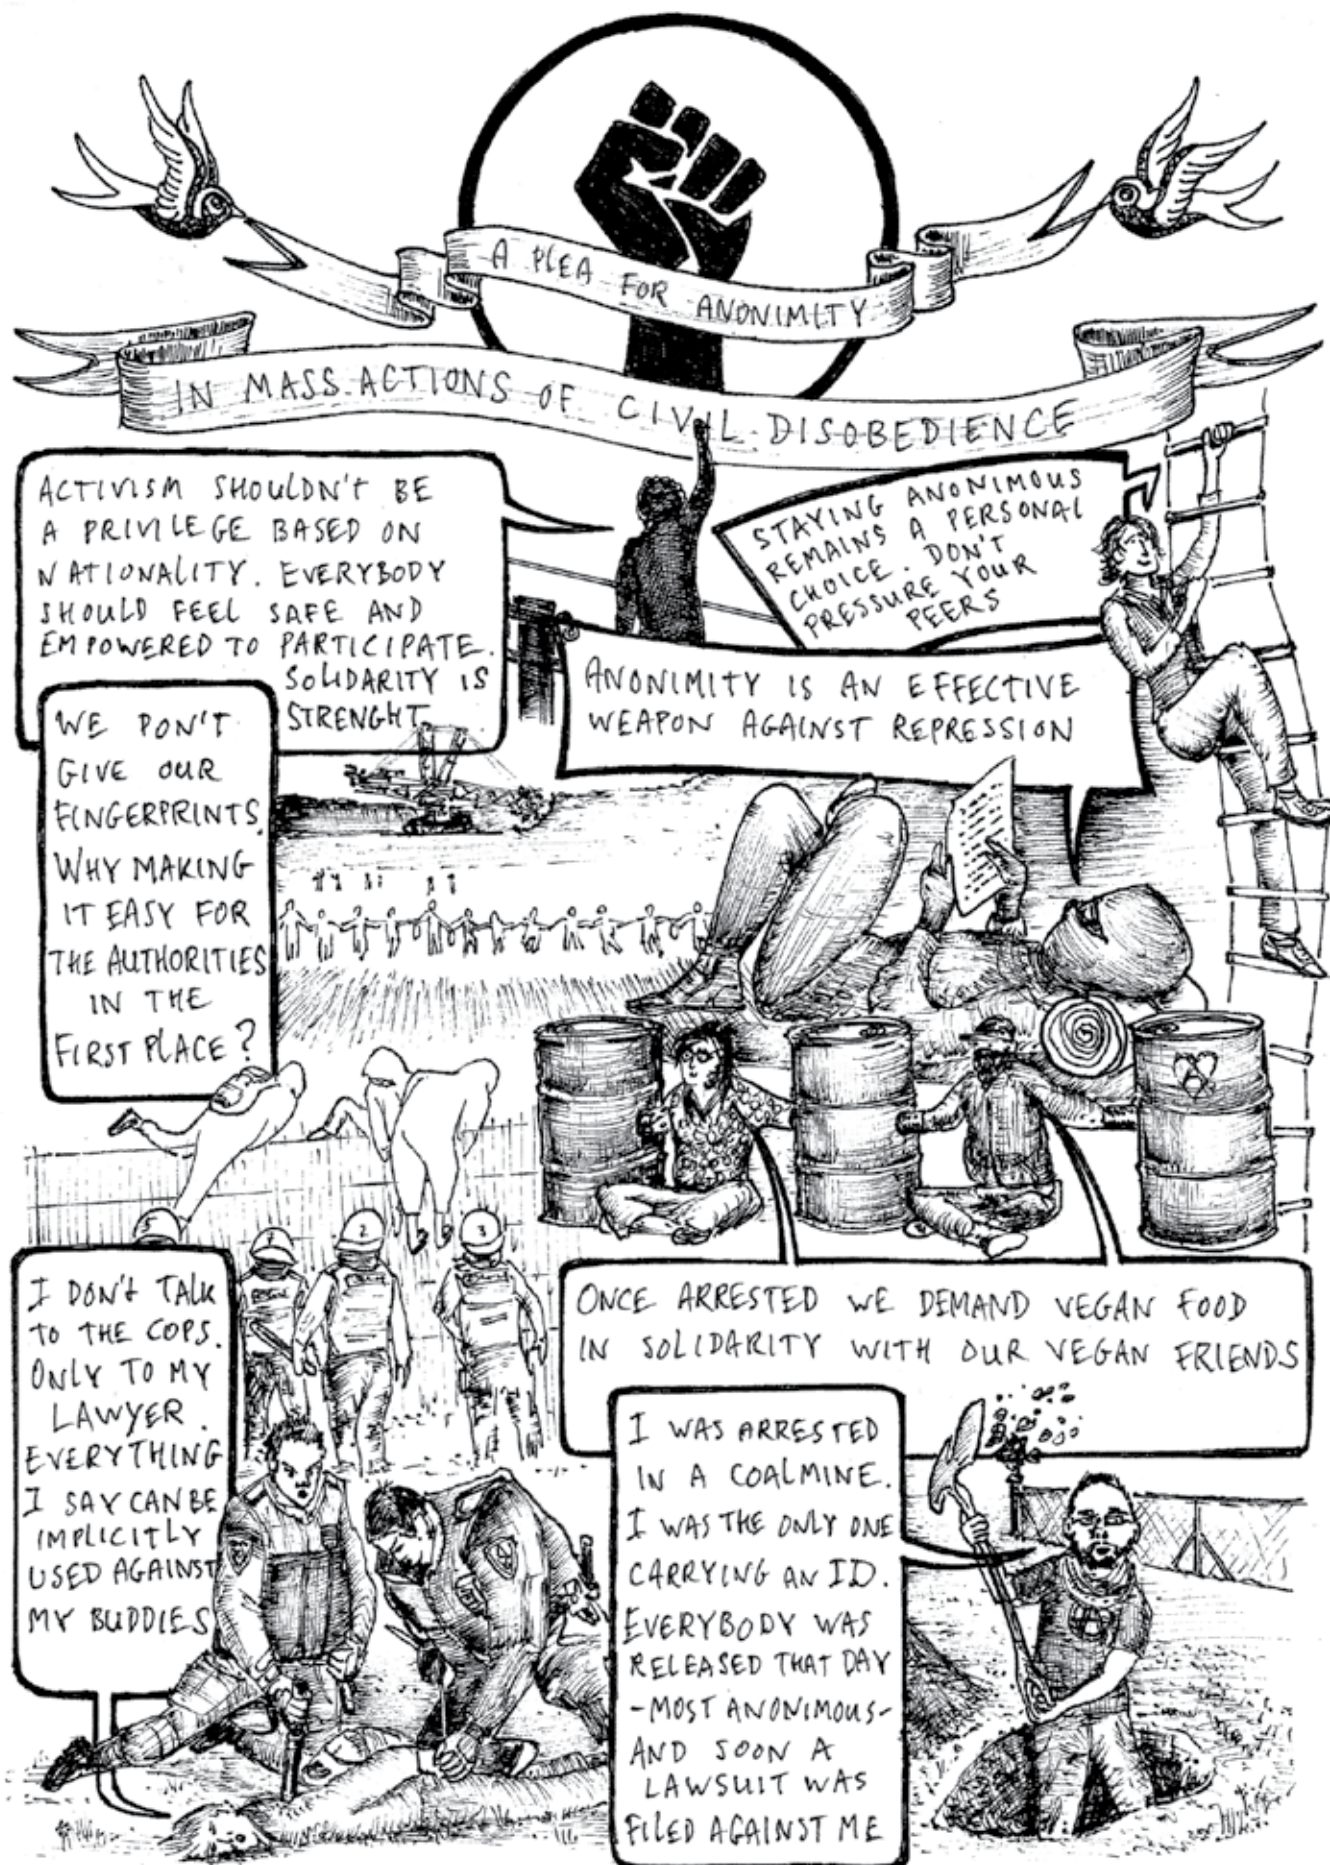 A PLEA FOR ANONIMITY
IN MASS ACTIONS OF CIVIL DISOBEDIENCE
ACTIVISM SHOULDN'T BE
A PRIVILEGE BASED ON
NATIONALITY. EVERYBODY
SHOULD FEEL SAFE AND
EMPOWERED TO PARTICIPATE.
SOLIDARITY IS
STRENGHT
STAYING ANONIMOUS
REMAINS A PERSONAL
CHOICE. DON'T
PRESSURE YOUR
PEERS
ANONIMITY IS AN EFFECTIVE
WEAPON AGAINST REPRESSION
WE DON'T
GIVE OUR
FINGERPRINTS.
WHY MAKING
IT EASY FOR
THE AUTHORITIES
IN THE
FIRST PLACE?
5
1
2
3
I DON'T TALK
TO THE COPS.
ONLY TO MY
LAWYER.
EVERYTHING
I SAY CAN BE
IMPLICITLY
USED AGAINST
MY BUDDIES
ONCE ARRESTED WE DEMAND VEGAN FOOD
IN SOLIDARITY WITH OUR VEGAN FRIENDS
I WAS ARRESTED
IN A COALMINE.
I WAS THE ONLY ONE
CARRYING AN ID.
EVERYBODY WAS
RELEASED THAT DAY
-MOST ANONIMOUS-
AND SOON A
LAWSUIT WAS
FILED AGAINST ME